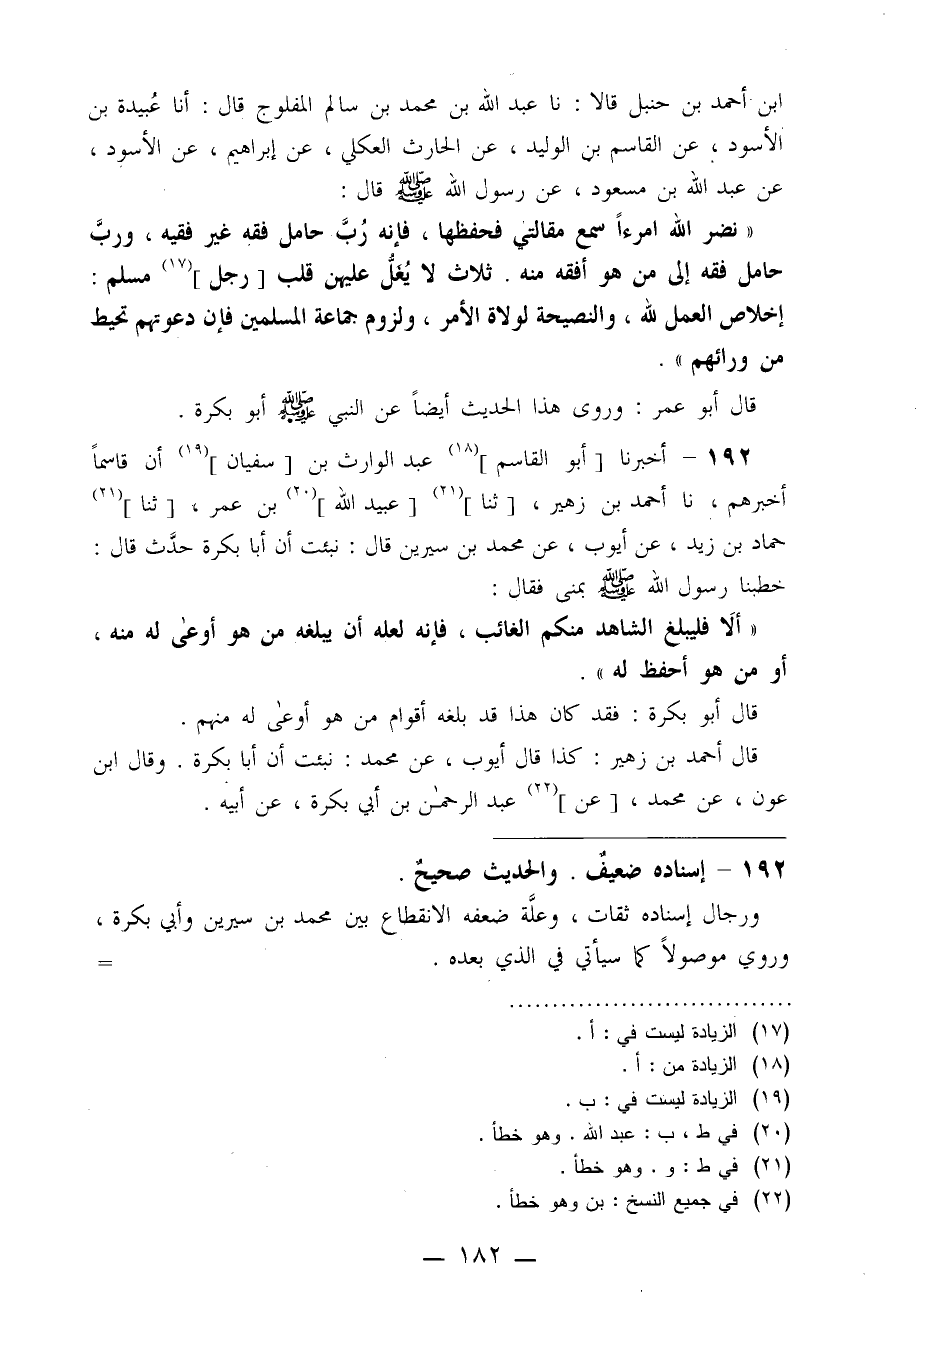 ابن أحمد بن حنبل قالا : نا عبد الله بن محمد بن سالم المفلوج قال : أنا عُبيدة بن
الأسود ، عن القاسم بن الوليد ، عن الحارث العكلي ، عن إبراهيم ، عن الأسود ،
عن عبد الله بن مسعود ، عن رسول الله ﷺ قال :
« نضر الله امرءاً سمع مقالتي فحفظها ، فإنه رُبَّ حامل فقه غير فقيه ، وربَّ
حامل فقه إلى من هو أفقه منه . ثلاث لا يُغَلُّ عليهن قلب [ رجل ](١٧) مسلم :
إخلاص العمل لله ، والنصيحة لولاة الأمر ، ولزوم جماعة المسلمين فإن دعوتهم تحيط
من ورائهم » .
قال أبو عمر : وروى هذا الحديث أيضاً عن النبي ﷺ أبو بكرة .
١٩٢ – أخبرنا [ أبو القاسم ](١٨) عبد الوارث بن [ سفيان ](١٩) أن قاسماً
أخبرهم ، نا أحمد بن زهير ، [ ثنا ](٢١) [ عبيد الله ](٢٠) بن عمر ، [ ثنا ](٢١)
حماد بن زيد ، عن أيوب ، عن محمد بن سيرين قال : نبئت أن أبا بكرة حدَّث قال :
خطبنا رسول الله ﷺ بمنى فقال :
« ألَا فليبلغ الشاهد منكم الغائب ، فإنه لعله أن يبلغه من هو أوعى له منه ،
أو من هو أحفظ له » .
قال أبو بكرة : فقد كان هذا قد بلغه أقوام من هو أوعى له منهم .
قال أحمد بن زهير : كذا قال أيوب ، عن محمد : نبئت أن أبا بكرة . وقال ابن
عون ، عن محمد ، [ عن ](٢٢) عبد الرحمٰن بن أبي بكرة ، عن أبيه .
١٩٢ – إسناده ضعيفٌ . والحديث صحيحٌ .
ورجال إسناده ثقات ، وعلَّة ضعفه الانقطاع بين محمد بن سيرين وأبي بكرة ،
وروي موصولاً كما سيأتي في الذي بعده . =
(١٧) الزيادة ليست في : أ .
(١٨) الزيادة من : أ .
(١٩) الزيادة ليست في : ب .
(٢٠) في ط ، ب : عبد الله . وهو خطأ .
(٢١) في ط : و . وهو خطأ .
(٢٢) في جميع النسخ : بن وهو خطأ .
— ١٨٢ —